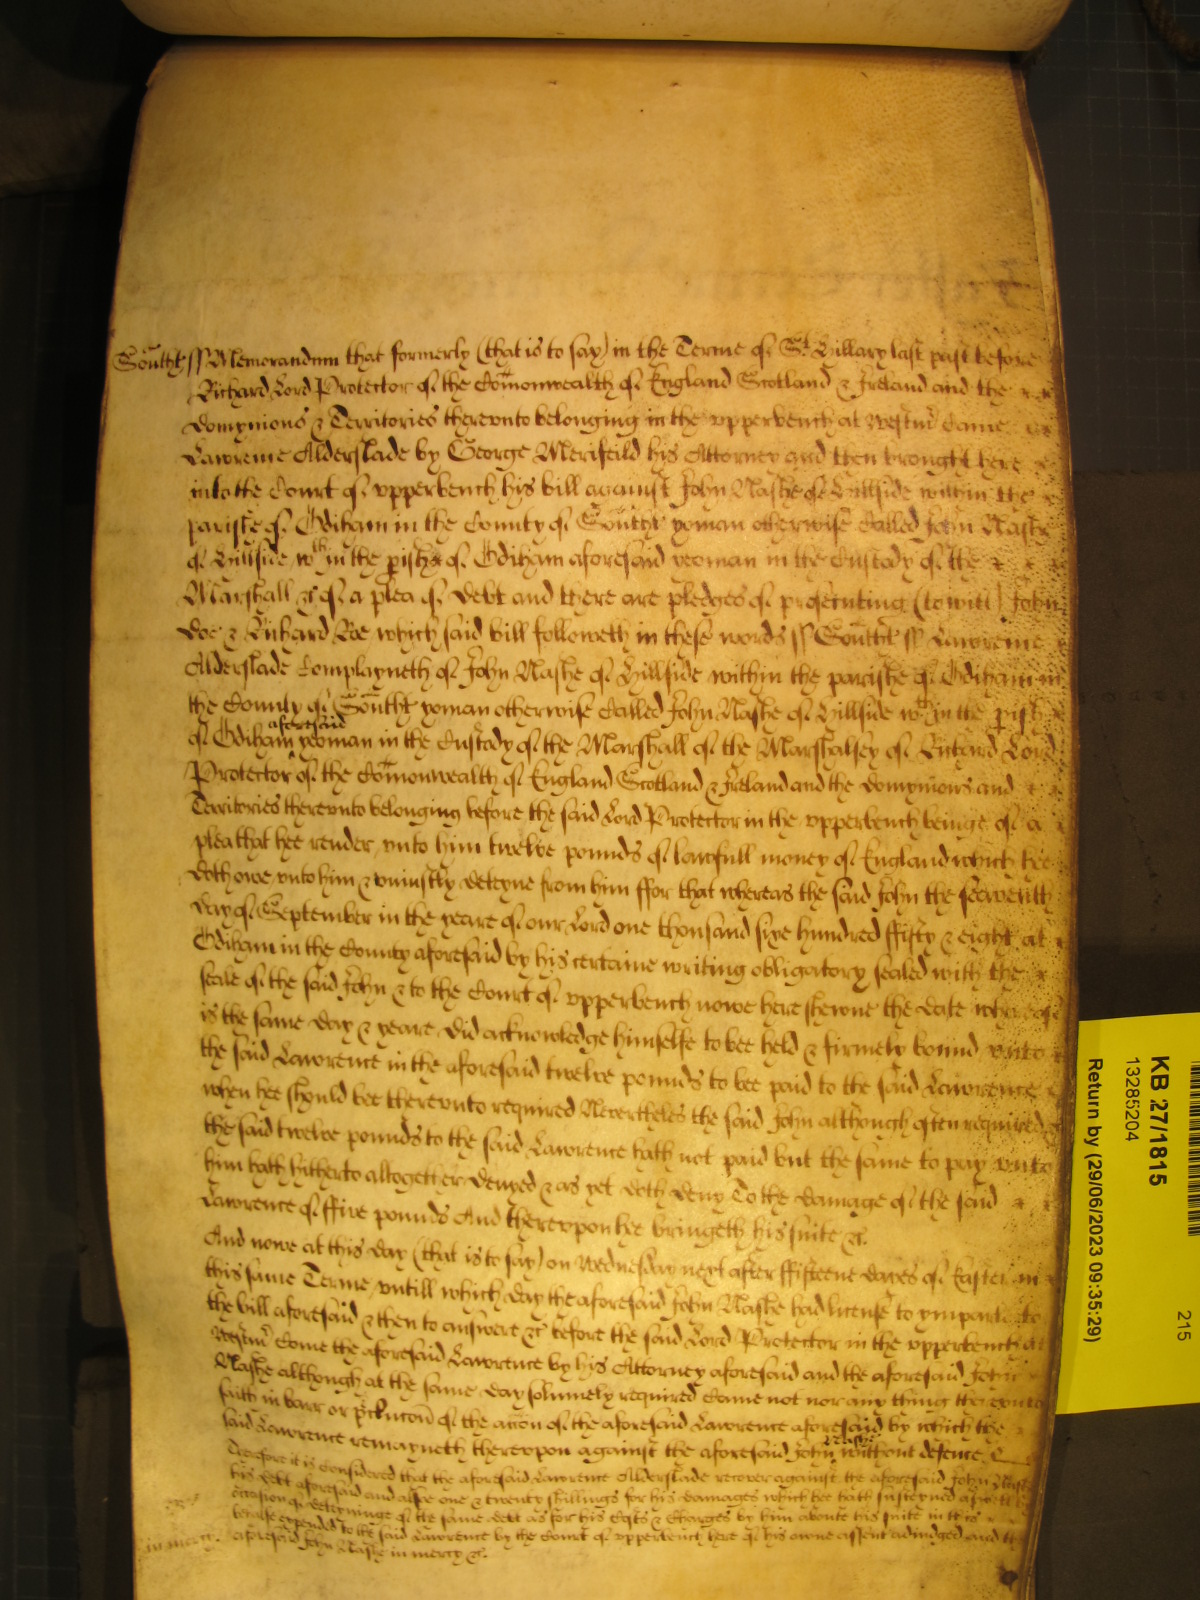 Southt ss Memorandum that formerly (that is to say) in the Terme of St Hillary last past before
Richard Lord Protector of the Comonwealth of England Scotland & Ireland and the
Domynions & Territories therevnto belonging in the vpperbench at Westmr Came
Lawrence Alderslade by George Merifeild his Attorney and then brought here
into the Court of vpperbench his bill against John Nashe of Hillside within the
parishe of Odiham in the County of Southt yoman otherwise Called John Nashe
of Hillside wth in the pishe of Odiham aforesaid yeoman in the Custody of the
Marshall &c of a plea of Debt and there are pledges of prosecuting (to witt) John
Doe & Richard Roe which said bill followeth in these words ss Southt ss Lawrence
Alderslade Complayneth of John Nashe of Hillside within the parishe of Odiham in
the County of Southt yoman otherwise Called John Nashe of Hillside wth in the pish
of Odiham aforesaid yeoman in the Custody of the Marshall of the Marshalsey of Richard Lord
Protector of the Comonwealth of England Scotland & Ireland and the Domynions and
Territories therevnto belonging before the said Lord Protector in the vpperbench beinge of a
plea that hee render vnto him twelve pounds of lawfull money of England which hee
doth owe vnto him & vniustly deteyne from him ffor that whereas the said John the seaventh
day of September in the yeare of our Lord one thousand sixe hundred ffifty & eight at
Odiham in the County aforesaid by his certaine writing obligatory sealed with the
seale of the said John & to the Court of vpperbench nowe here shewne the date whereof
is the same day & yeare did acknowledge himselfe to bee held & firmely bound vnto
the said Lawrence in the aforesaid twelve pounds to bee paid to the said Lawrence
when hee should bee therevnto required Nevertheles the said John although often required
the said twelve pounds to the said Lawrence hath not paid but the same to pay vnto
him hath hitherto altogether denyed & as yet doth deny To the damage of the said
Lawrence of ffive pounds And therevpon hee bringeth his suite &c.
And nowe at this day (that is to say) on Wednesday next after ffifteene dayes of Easter in
this same Terme vntill which day the aforesaid John Nashe had license to ymparle to
the bill aforesaid & then to answere &c before the said Lord Protector in the vpperbench at
Westmr Come the aforesaid Lawrence by his Attorney aforesaid and the aforesaid John
Nashe although at the same day solemnely required Came not nor any thing therevnto
saith in barr or pclucon of the accon of the aforesaid Lawrence aforesaid by which the
said Lawrence remayneth therevpon against the aforesaid John Nashe without defence
Therefore it is Considered that the aforesaid Lawrence Alderslade recover against the aforesaid John Nashe
his debt aforesaid and alsoe one & twenty shillings for his damages which hee hath susteyned aswell
occasion of deteyninge of the same debt as for his Costs & Charges by him aboute his suite in this
behalfe expended to the said Lawrence by the Court of vpperbench here of his owne assent adiudged and the
aforesaid John Nashe in mercy &c.
in mercy.
KB 27/1815
13285204
215
Return by (29/06/2023 09:35:29)